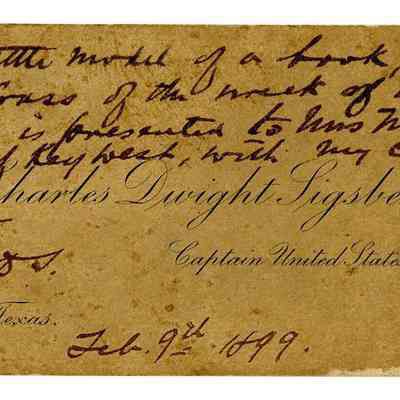 little model of a book,
brass of the wreck of
is presented to Mrs M
of Key West, with my c
Charles Dwight Sigsbe
Captain United States
Texas.
Feb. 9th 1899.